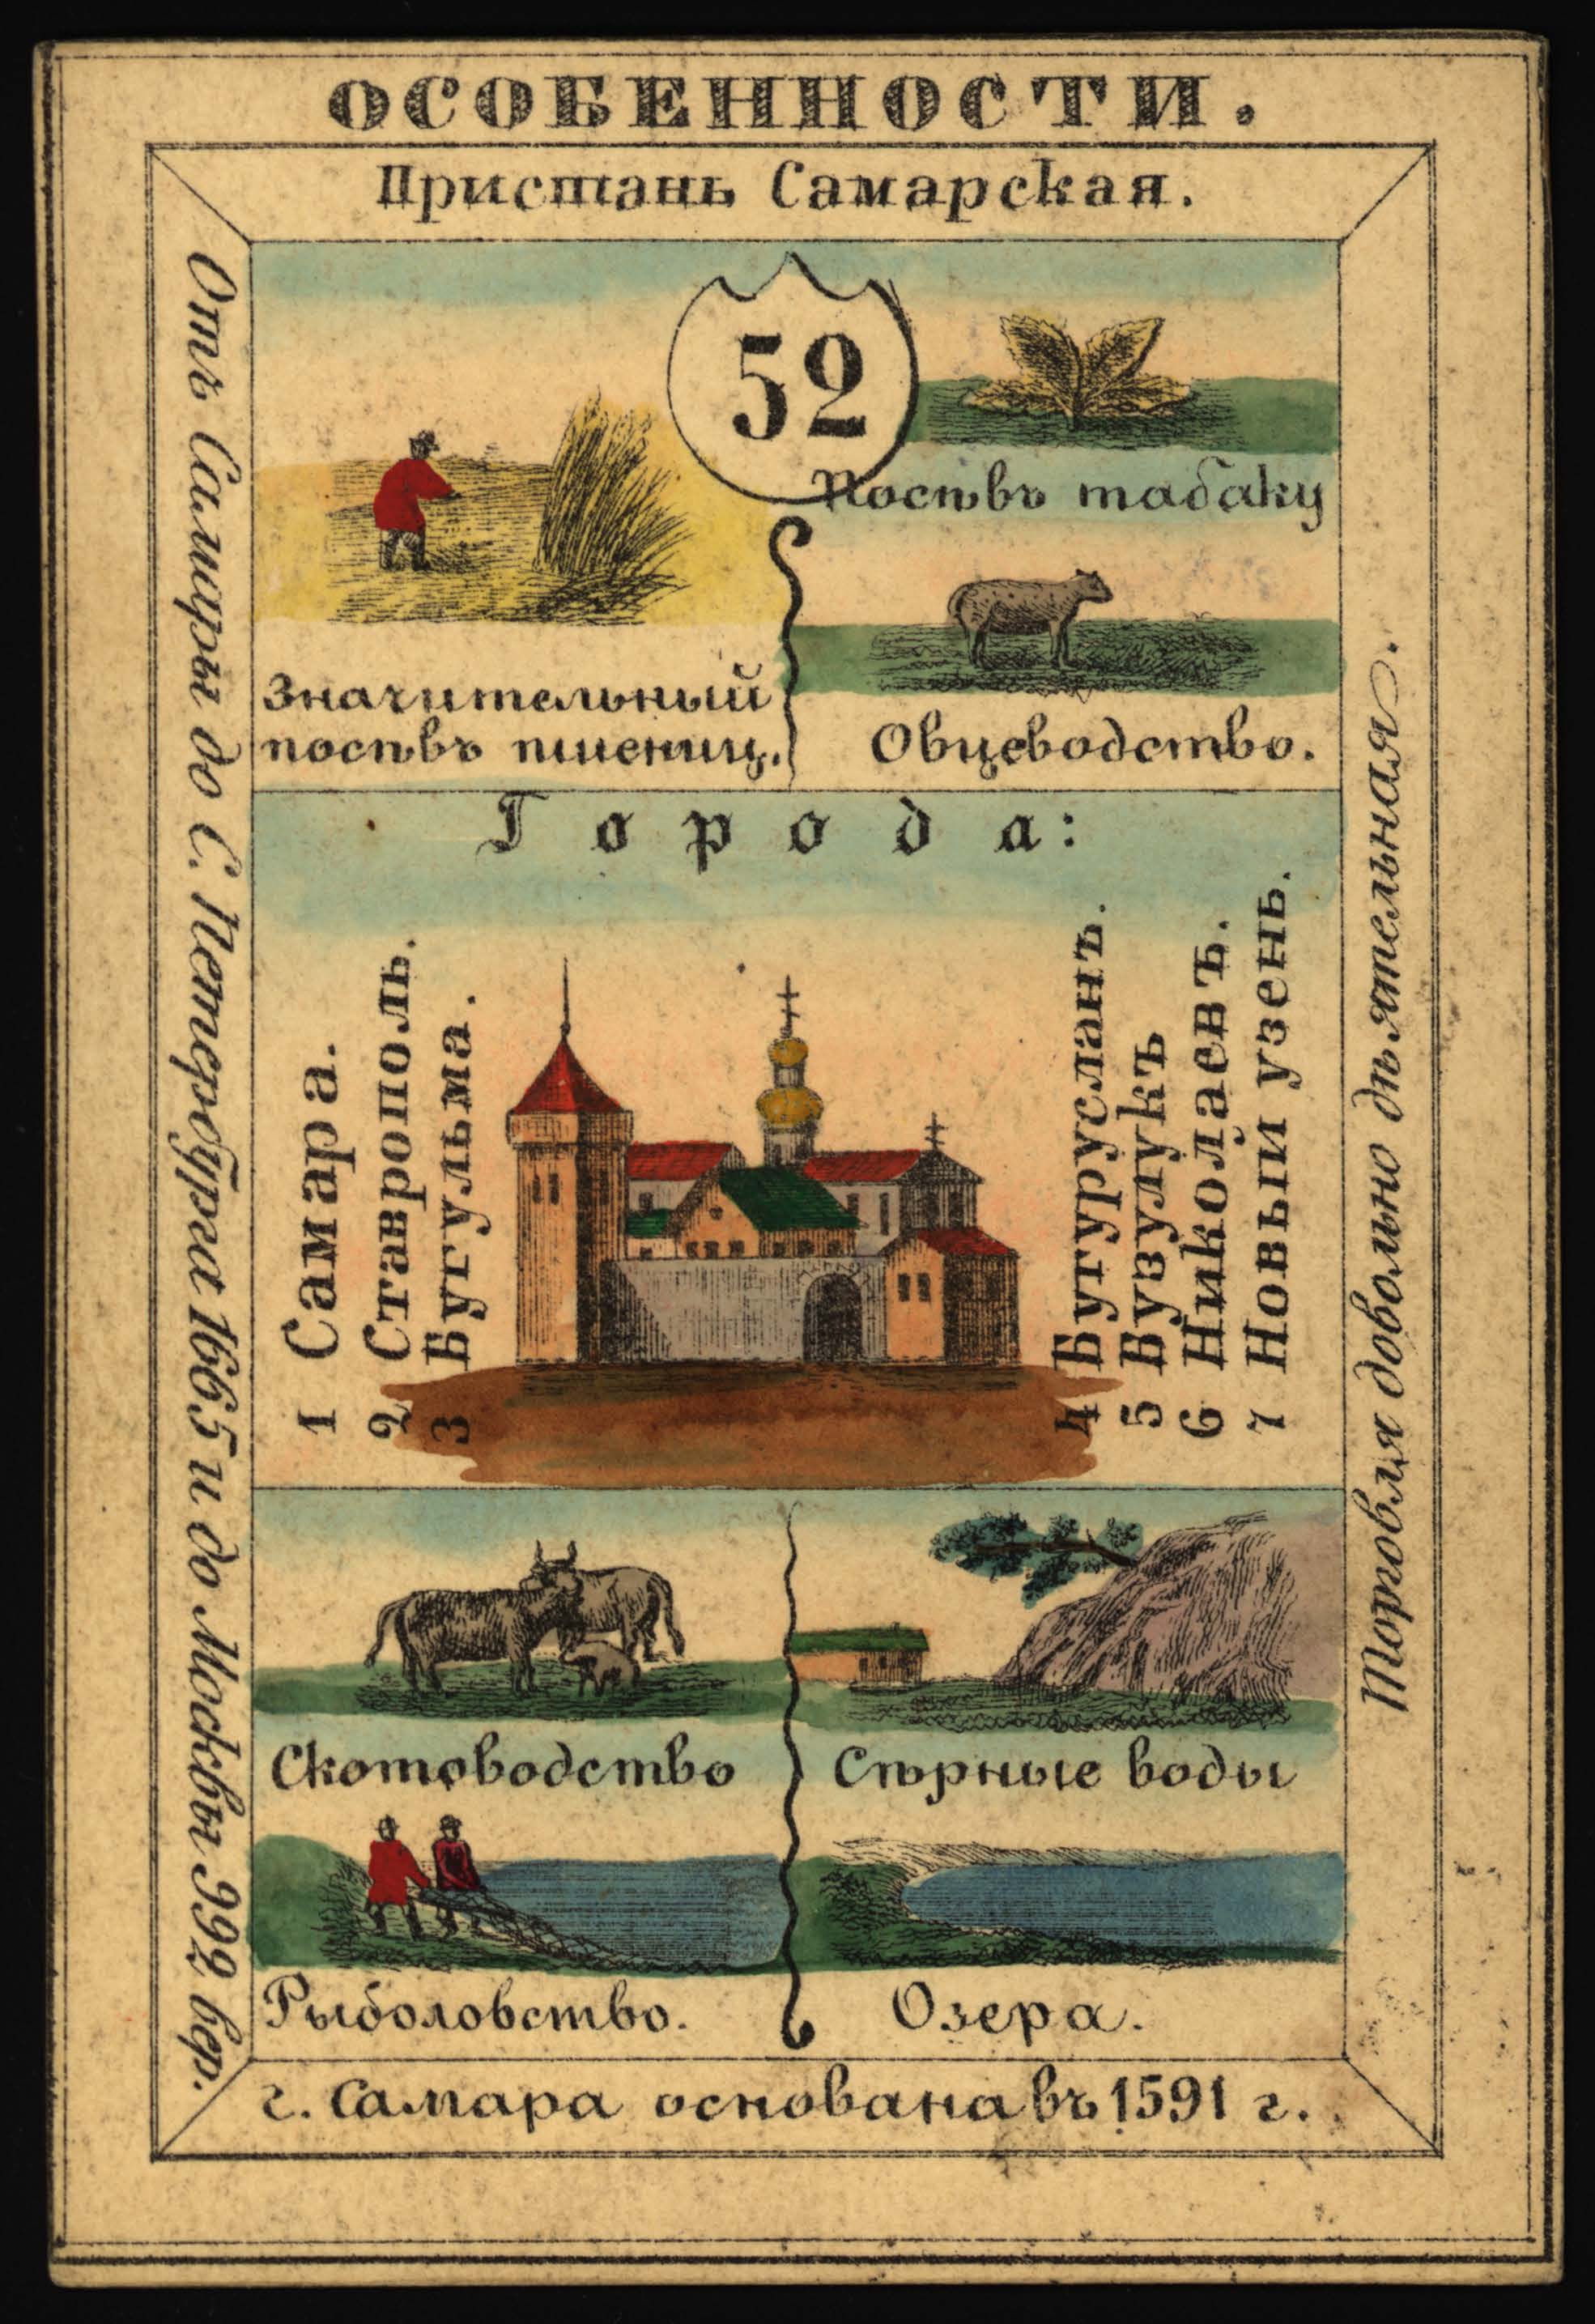 ОСОБЕННОСТИ.
Пристань Самарская.
Отъ Самары до С. Петербурга 1665 и до Москвы 992 вер.
52
Посѣвъ табаку
Значительный
посѣвъ пшениц.
Овцеводство.
Города:
1 Самара.
2 Ставрополь.
3 Бугульма.
4 Бугурусланъ.
5 Бузулукъ
6 Николаевъ.
7 Новый узень.
Торговля довольно дѣятельная.
Скотоводство
Сѣрные воды
Рыболовство.
Озера.
г. Самара основана въ 1591 г.